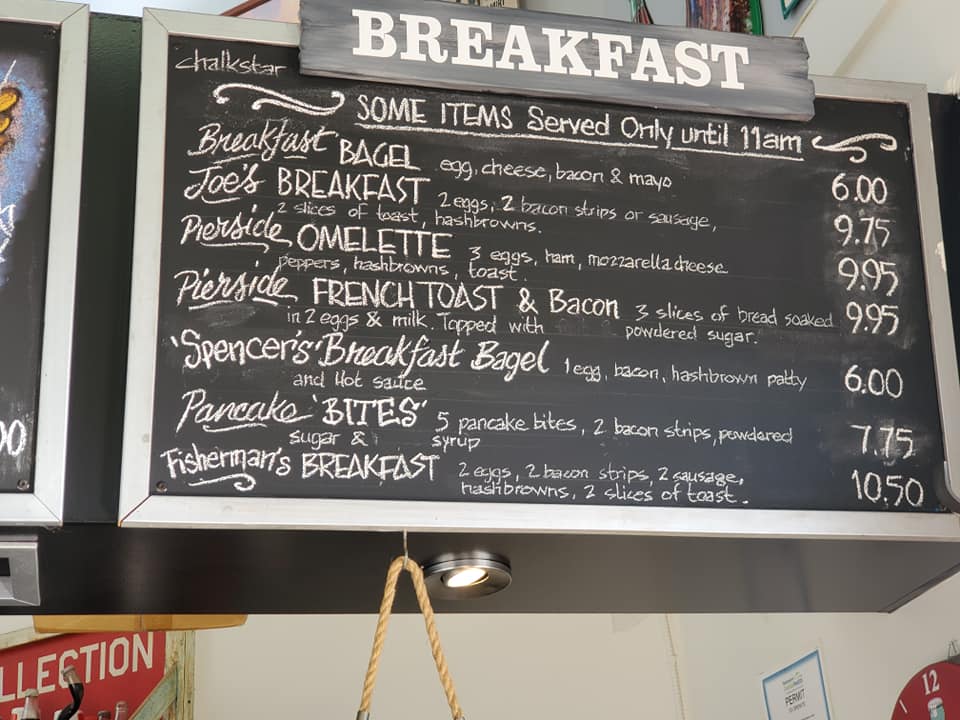 BREAKFAST
chalkstar
SOME ITEMS Served Only until 11am
Breakfast BAGEL egg, cheese, bacon & mayo 6.00
Joe's BREAKFAST 2 eggs, 2 bacon strips or sausage, 9.75
2 slices of toast, hashbrowns.
Pierside OMELETTE 3 eggs, ham, mozzarella cheese 9.95
peppers, hashbrowns, toast.
Pierside FRENCH TOAST & Bacon 3 slices of bread soaked 9.95
in 2 eggs & milk. Topped with powdered sugar.
'Spencer's' Breakfast Bagel 1 egg, bacon, hashbrown patty 6.00
and Hot sauce
Pancake 'BITES' 5 pancake bites, 2 bacon strips, powdered 7.75
sugar & syrup
Fisherman's BREAKFAST 2 eggs, 2 bacon strips, 2 sausage, 10.50
hashbrowns, 2 slices of toast.
LLECTION
PERMIT
12